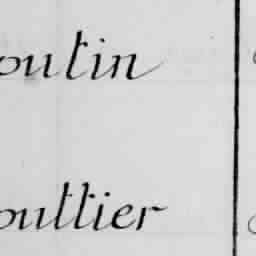 outin
outtier